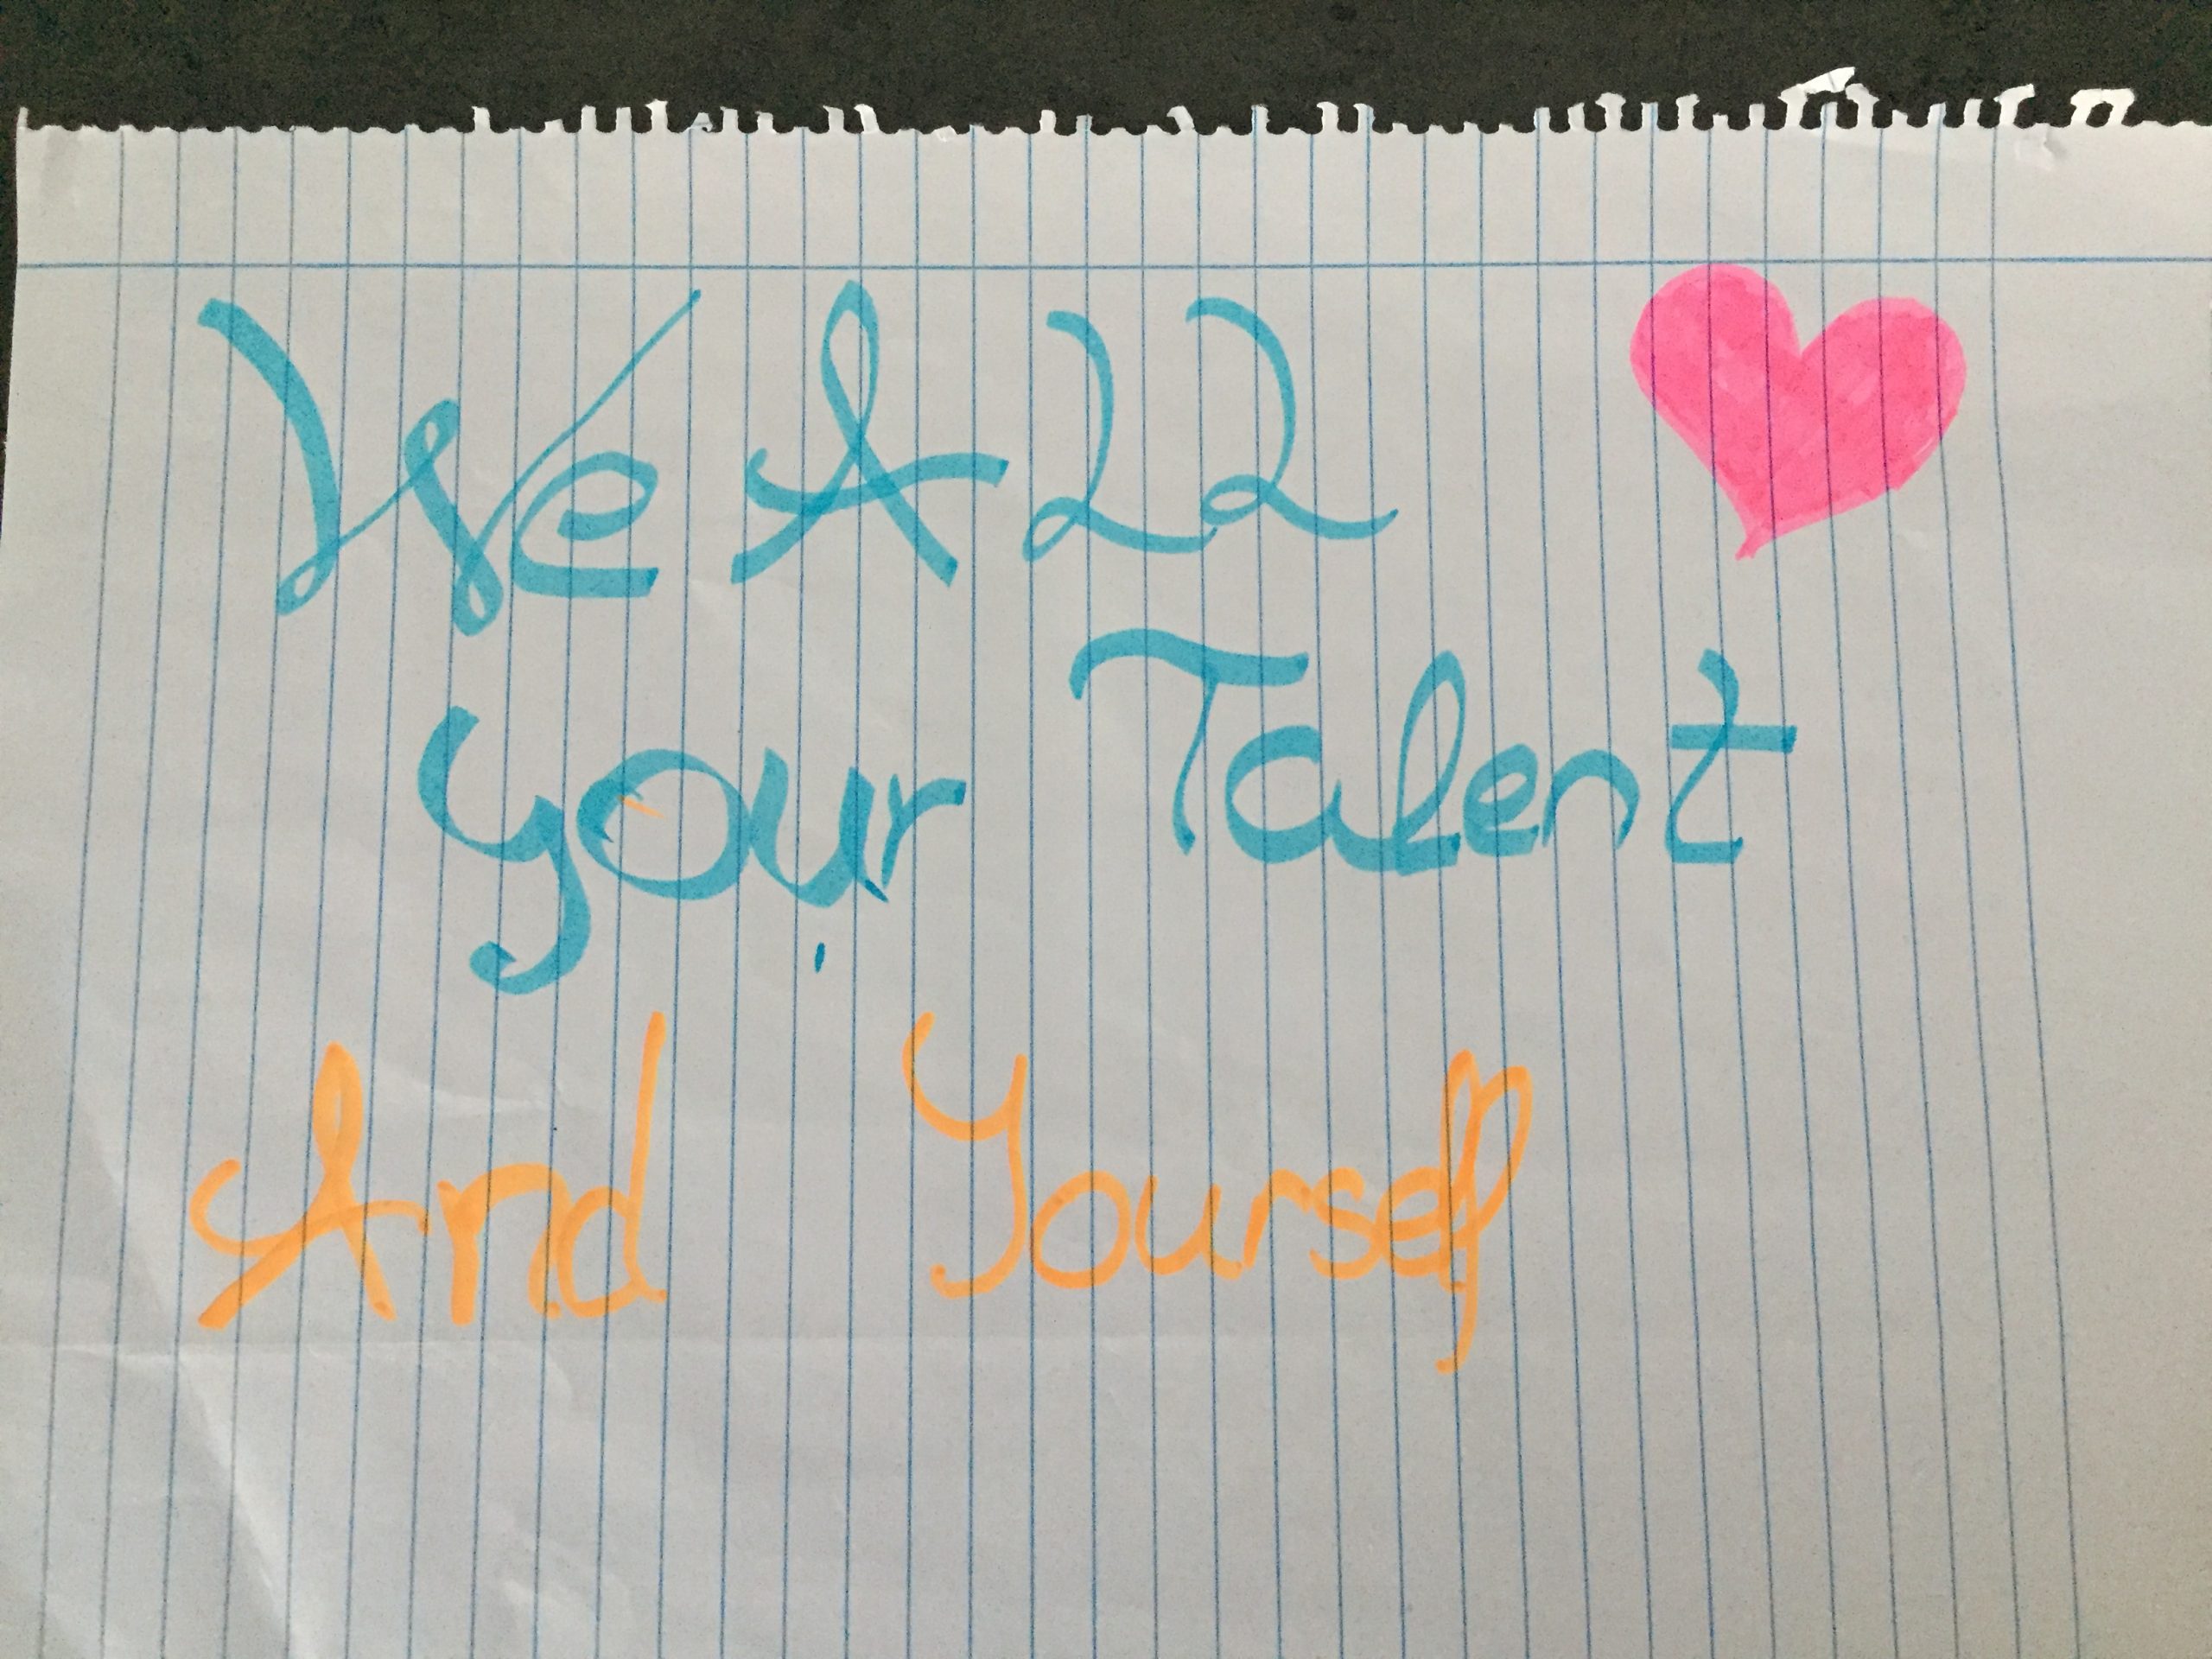 We All ♥
your Talent
And Yourself